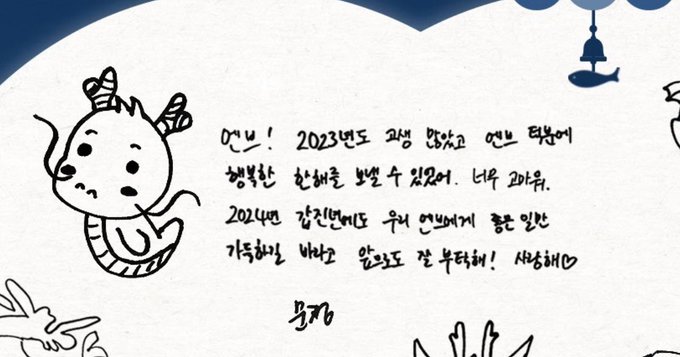 엔브! 2023년도 고생 많았고 엔브 덕분에
행복한 한해를 보낼 수 있었어. 너무 고마워.
2024년 갑진년에도 우리 엔브에게 좋은 일만
가득하길 바라고 앞으로도 잘 부탁해! 사랑해♡
문정